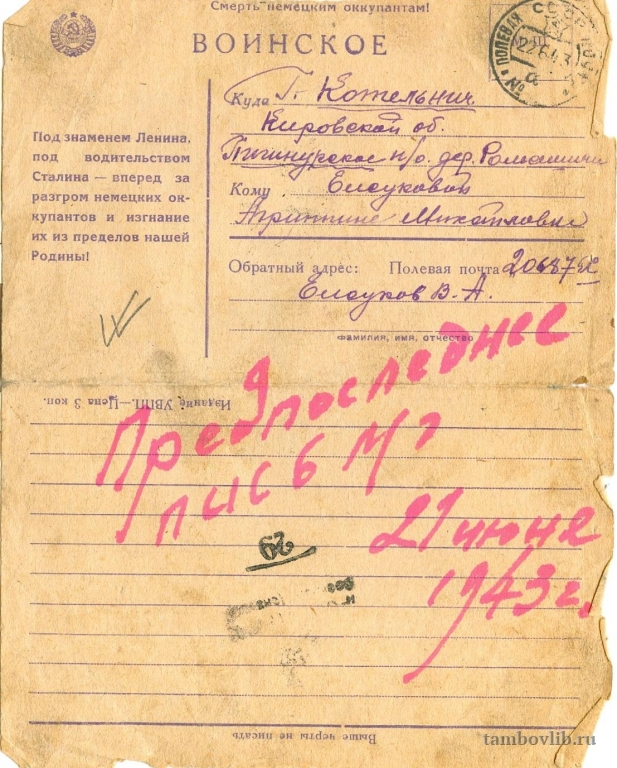 Смерть немецким оккупантам!
ВОИНСКОЕ
ПОЛЕВАЯ
СССР
22 6 43
Куда Г. Котельнич
Кировской об.
Пигинурское п/о. дер. Ромашичи
Кому Елсуковой
Агрипине Михайловне
Под знаменем Ленина,
под водительством
Сталина — вперед за
разгром немецких ок-
купантов и изгнание
их из пределов нашей
Родины!
Обратный адрес: Полевая почта 20687
Елсуков В. А.
фамилия, имя, отчество
Издание УВПП.—Цена 3 коп.
Предпоследнее
письмо
21 июня
1943 г.
29
Выше черты не писать
tambovlib.ru